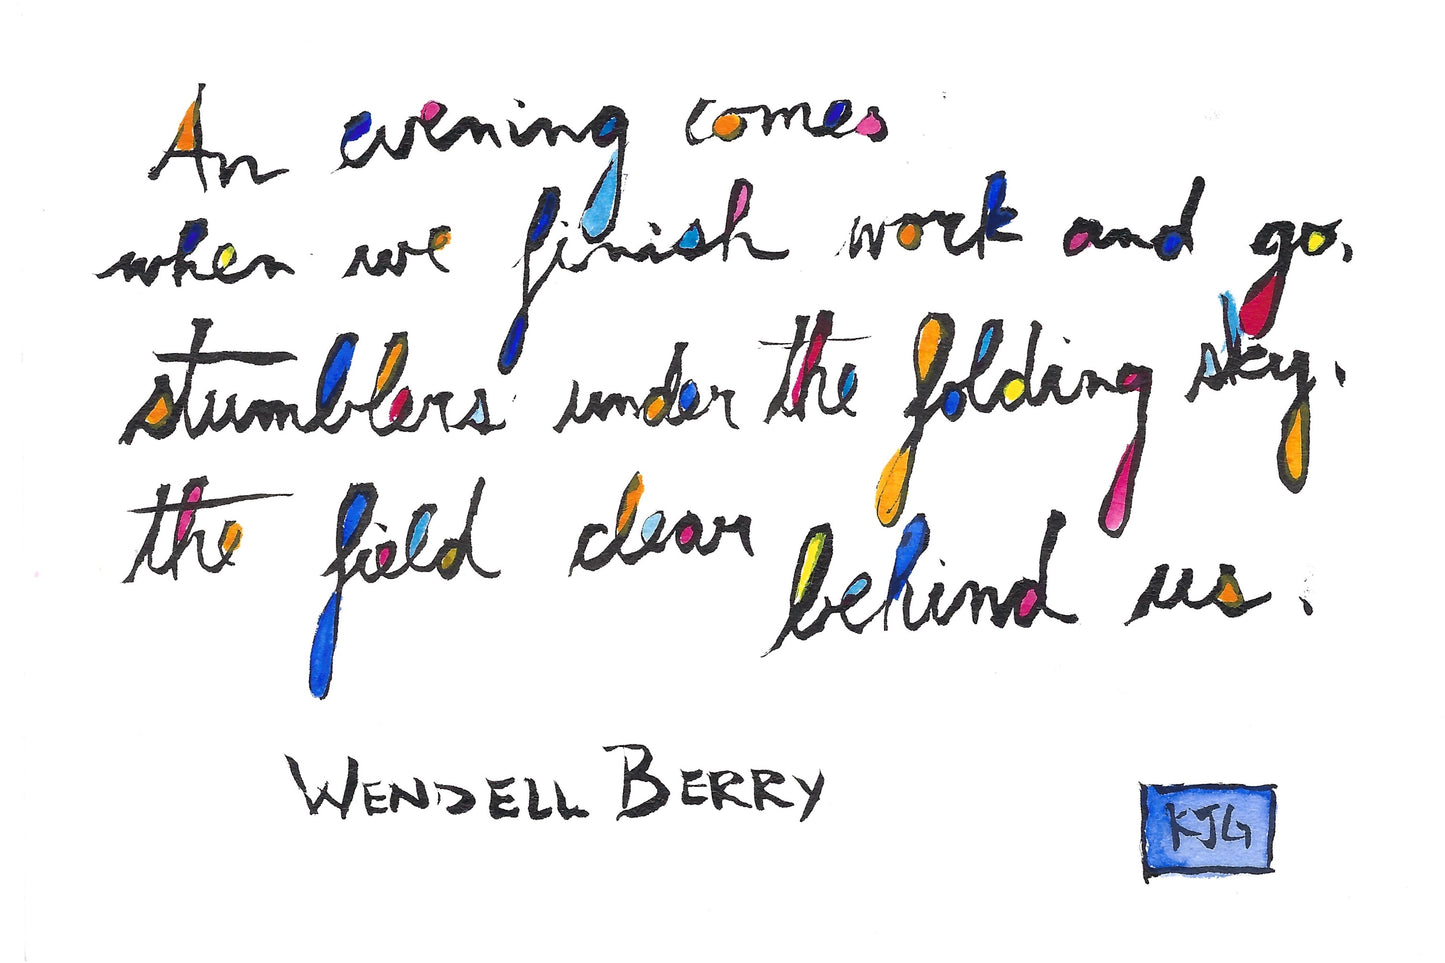 An evening comes
when we finish work and go,
stumblers under the folding sky,
the field clear behind us.
WENDELL BERRY
KJG